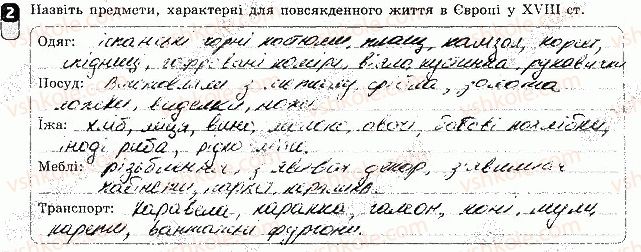 2 Назвіть предмети, характерні для повсякденного життя в Європі у XVIII ст.
Одяг: іспанські чорні костюми, плащ, камзол, корсет,
спідниц, гофровані коміри, рукавички
Посуд: Виготовляли з срібла, золота
ложки, виделки, ножі.
Їжа: хліб, яйця, вино, молоко, овочі, бобові похлібки,
іноді риба, рідко м'ясо.
Меблі: різьблення, з декор, з'явились
кабінети,
Транспорт: Каравела, каракка, галеон, коні, мули,
карети, вантажні фургони.